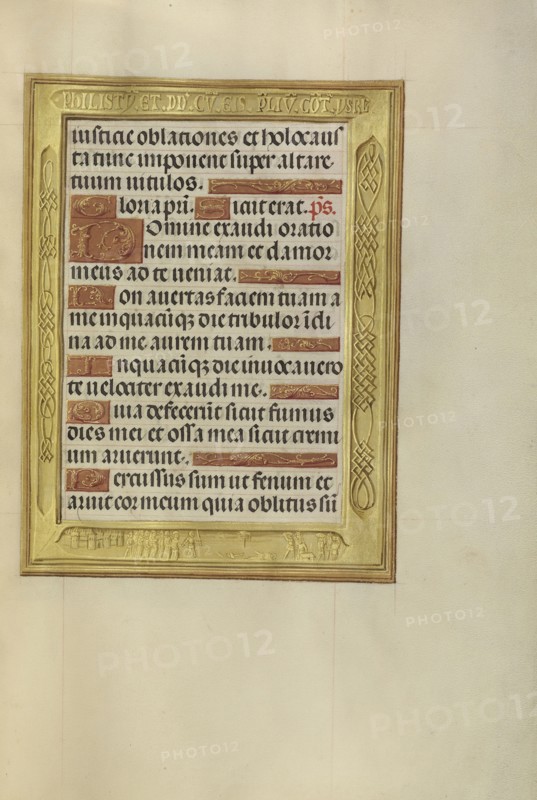 PHILISTV. ET. DD. CV. EIS. PLIV. COT. VSRE
iusticie oblationes et holocaus
ta tunc imponent super altare
tuum uitulos.
Gloria pri. Sicut erat. ps.
Domine exaudi oratio
nem meam et clamor
meus ad te ueniat.
Non auertas faciem tuam a
me in quacūqz die tribulor īcli
na ad me aurem tuam.
In quacūqz die inuocauero
te uelociter exaudi me.
Quia defecerūt sicut fumus
dies mei et ossa mea sicut cremi
um aruerunt.
Percussus sum ut fenum et
aruit cor meum quia oblitus sū
PHOTO12